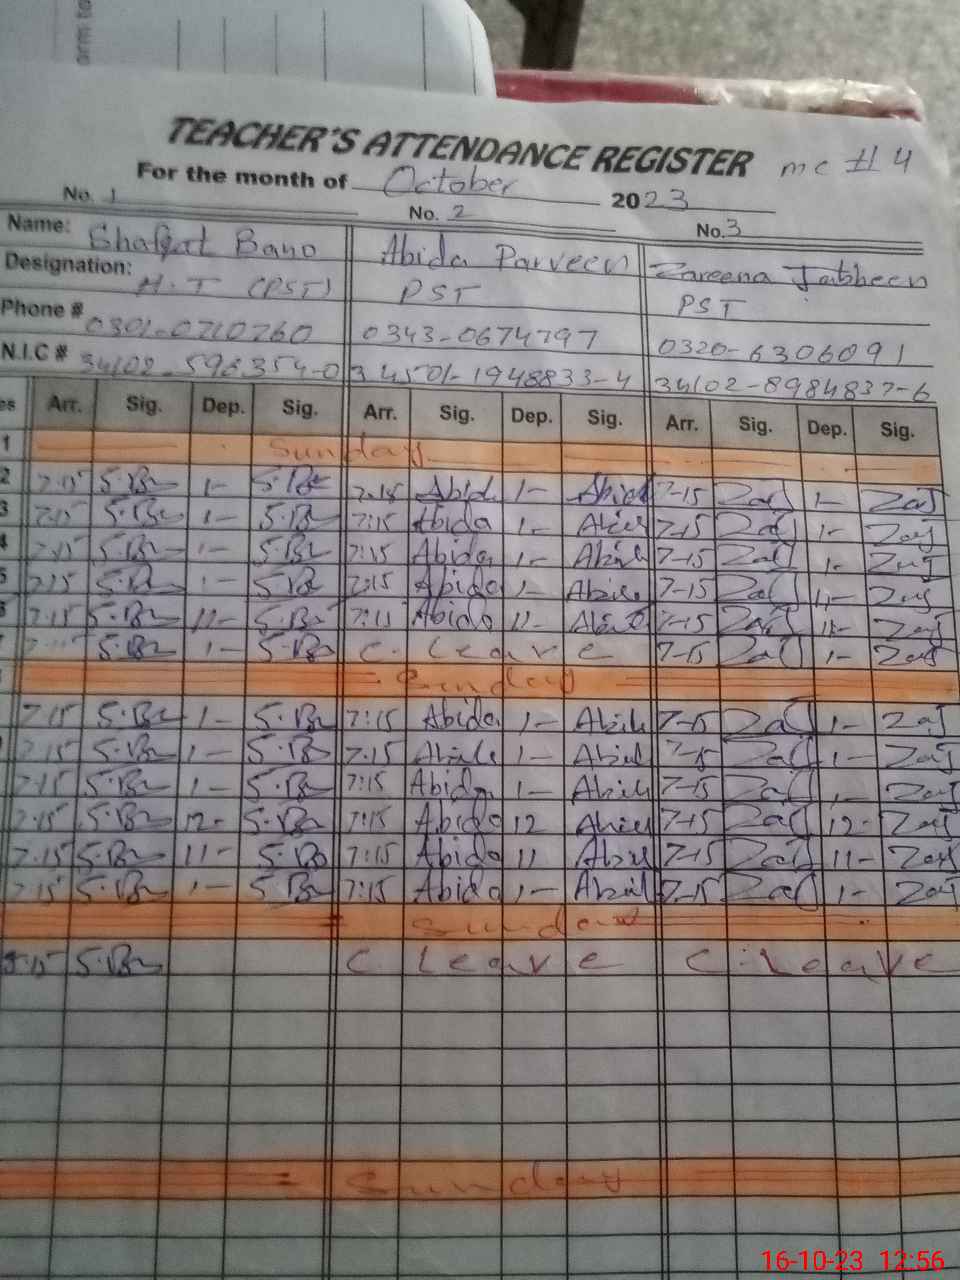 orm to
TEACHER'S ATTENDANCE REGISTER mc # 4
For the month of October 2023
No. 1 No. 2 No. 3
Name: Shafqat Bano Abida Parveen Zareena Jabheen
Designation: H.T (PST) PST PST
Phone # 0301-0710760 0343-0674797 0320-6306091
N.I.C # 34102-596354-0 34501-1948833-4 34102-8984837-6
es Arr. Sig. Dep. Sig. Arr. Sig. Dep. Sig. Arr. Sig. Dep. Sig.
1 Sunday
2 7.15 S.Bn 1- S.Bn 7.15 Abida 1- Abida 7-15 Zaj 1- Zaj
3 7.15 S.Bn 1- S.Bn 7:15 Abida 1- Abida 7-15 Zaj 1- Zaj
4 7.15 S.Bn 1- S.Bn 7:15 Abida 1- Abida 7-15 Zaj 1- Zaj
5 7.15 S.Bn 1- S.Bn 7:15 Abida 1- Abida 7-15 Zaj 11- Zaj
6 7.15 S.Bn 11- S.Bn 7:15 Abida 11- Abida 7-15 Zaj 11- Zaj
S.Bn 1- S.Bn C. Leave 7-15 Zaj 1- Zaj
Sunday
7.15 S.Bn 1- S.Bn 7:15 Abida 1- Abida 7-15 Zaj 1- Zaj
7.15 S.Bn 1- S.Bn 7:15 Abida 1- Abida 7-15 Zaj 1- Zaj
7.15 S.Bn 1- S.Bn 7:15 Abida 1- Abida 7-15 Zaj 1- Zaj
7.15 S.Bn 12- S.Bn 7:15 Abida 12 Abida 7-15 Zaj 12- Zaj
7.15 S.Bn 11- S.Bn 7:15 Abida 11 Abida 7-15 Zaj 11- Zaj
7.15 S.Bn 1- S.Bn 7:15 Abida 1- Abida 7-15 Zaj 1- Zaj
Sunday
S.Bn C. Leave C. Leave
Sunday
16-10-23 12:56